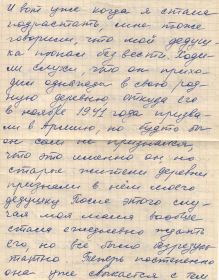 И вот уже когда я стала
подрастать мне тоже
говорили, что мой дедуш-
ка пропал без вести. Ходи-
ли слухи, что он прихо-
дил однажды в свою род-
ную деревню, откуда его
в ноябре 1941 года призва-
ли в армию, но будто бы
он сам не признался,
что это именно он, но
старые жители деревни
признали в нём моего
дедушку. После этого слу-
чая моя мама вообще
стала ежедневно ждать
его, но всё было безрезуль-
татно. Теперь постепенно
она уже свыкается с тем